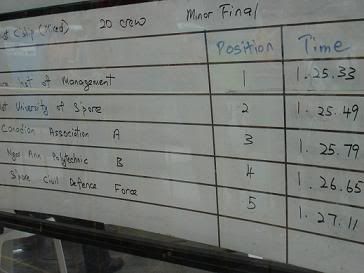 C'ship (Mixed) 20 crew Minor Final
Position Time
Inst of Management 1 1.25.33
University of S'pore 2 1.25.49
Canadian Association A 3 1.25.79
Ngee Ann Polytechnic B 4 1.26.65
S'pore Civil Defence Force 5 1.27.11